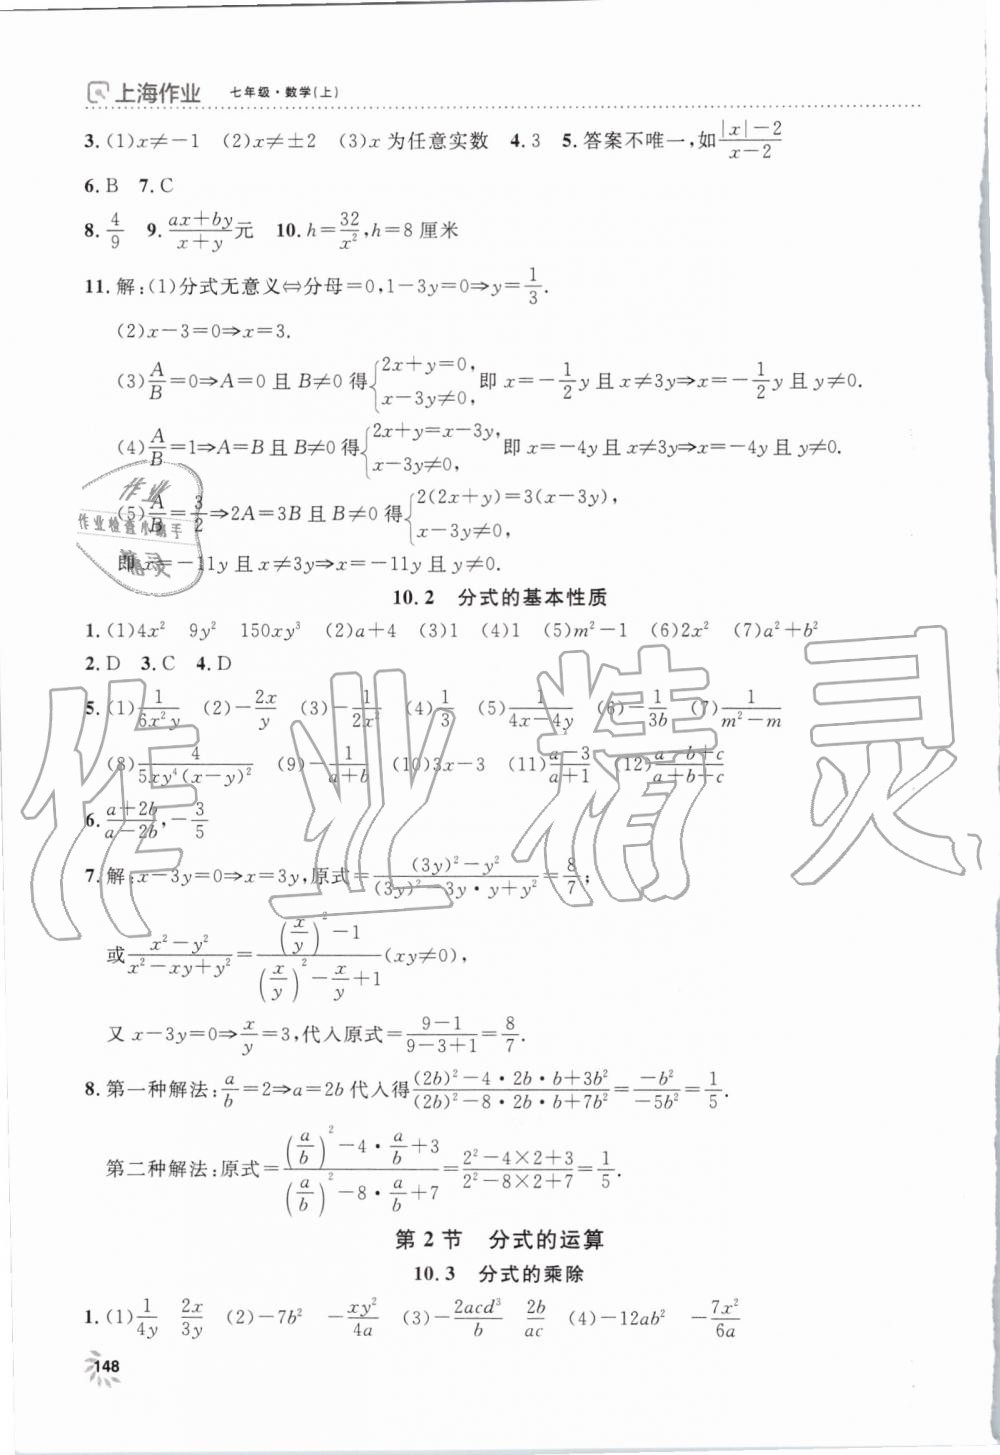 上海作业 七年级·数学(上)
3. (1)x≠−1 (2)x≠±2 (3)x 为任意实数 4. 3 5. 答案不唯一,如(|x|−2)/(x−2)
6. B 7. C
8. 4/9 9. (ax+by)/(x+y)元 10. h=32/x²,h=8 厘米
11. 解:(1)分式无意义⇔分母=0,1−3y=0⇒y=1/3.
(2)x−3=0⇒x=3.
(3)A/B=0⇒A=0 且 B≠0 得{2x+y=0, x−3y≠0, 即 x=−1/2y 且 x≠3y⇒x=−1/2y 且 y≠0.
(4)A/B=1⇒A=B 且 B≠0 得{2x+y=x−3y, x−3y≠0, 即 x=−4y 且 x≠3y⇒x=−4y 且 y≠0.
(5)A/B=3/2⇒2A=3B 且 B≠0 得{2(2x+y)=3(x−3y), x−3y≠0,
即 x=−11y 且 x≠3y⇒x=−11y 且 y≠0.
10.2 分式的基本性质
1. (1)4x² 9y² 150xy³ (2)a+4 (3)1 (4)1 (5)m²−1 (6)2x² (7)a²+b²
2. D 3. C 4. D
5. (1)1/(6x²y) (2)−2x/y (3)−1/(2x²) (4)1/3 (5)1/(4x−4y) (6)−1/(3b) (7)1/(m²−m)
(8)4/(5xy⁴(x−y)²) (9)−1/(a+b) (10)3x−3 (11)(a−3)/(a+1) (12)(a−b+c)/(a+b+c)
6. (a+2b)/(a−2b),−3/5
7. 解:x−3y=0⇒x=3y,原式=((3y)²−y²)/((3y)²−3y·y+y²)=8/7;
或(x²−y²)/(x²−xy+y²)=((x/y)²−1)/((x/y)²−x/y+1)(xy≠0),
又 x−3y=0⇒x/y=3,代入原式=(9−1)/(9−3+1)=8/7.
8. 第一种解法:a/b=2⇒a=2b 代入得((2b)²−4·2b·b+3b²)/((2b)²−8·2b·b+7b²)=−b²/−5b²=1/5.
第二种解法:原式=((a/b)²−4·a/b+3)/((a/b)²−8·a/b+7)=(2²−4×2+3)/(2²−8×2+7)=1/5.
第 2 节 分式的运算
10.3 分式的乘除
1. (1)1/(4y) 2x/(3y) (2)−7b² −xy²/(4a) (3)−2acd³/b 2b/(ac) (4)−12ab² −7x²/(6a)
148
作业
作业检查小助手
精灵
作业精灵